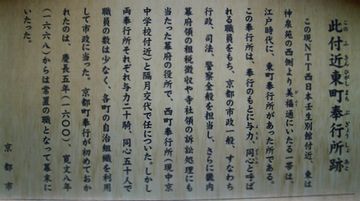 此付近東町奉行所跡
この現NTT西日本壬生別館付近、東は
神泉苑の西側より美福通にいたる一帯は
江戸時代に、東町奉行所があった所である。
この奉行所は、奉行のもとに与力、同心と呼ば
れる職員をもち、京都の市政一般、すなわち
行政、司法、警察全般を担当し、さらに畿内
幕府領の租税徴収や寺社領の訴訟処理にも
当たった幕府の役所で、西町奉行所(現中京
中学校付近)と隔月交代で任についた。しかし
両奉行所それぞれ与力二十騎、同心五十人で
職員の数は少なく、各町の自治組織を利用
して市政に当った。京都町奉行が初めておか
れたのは、慶長五年(一六〇〇)、寛文八年
(一六六八)からは常置の職となって幕末に
いたった。
京都市